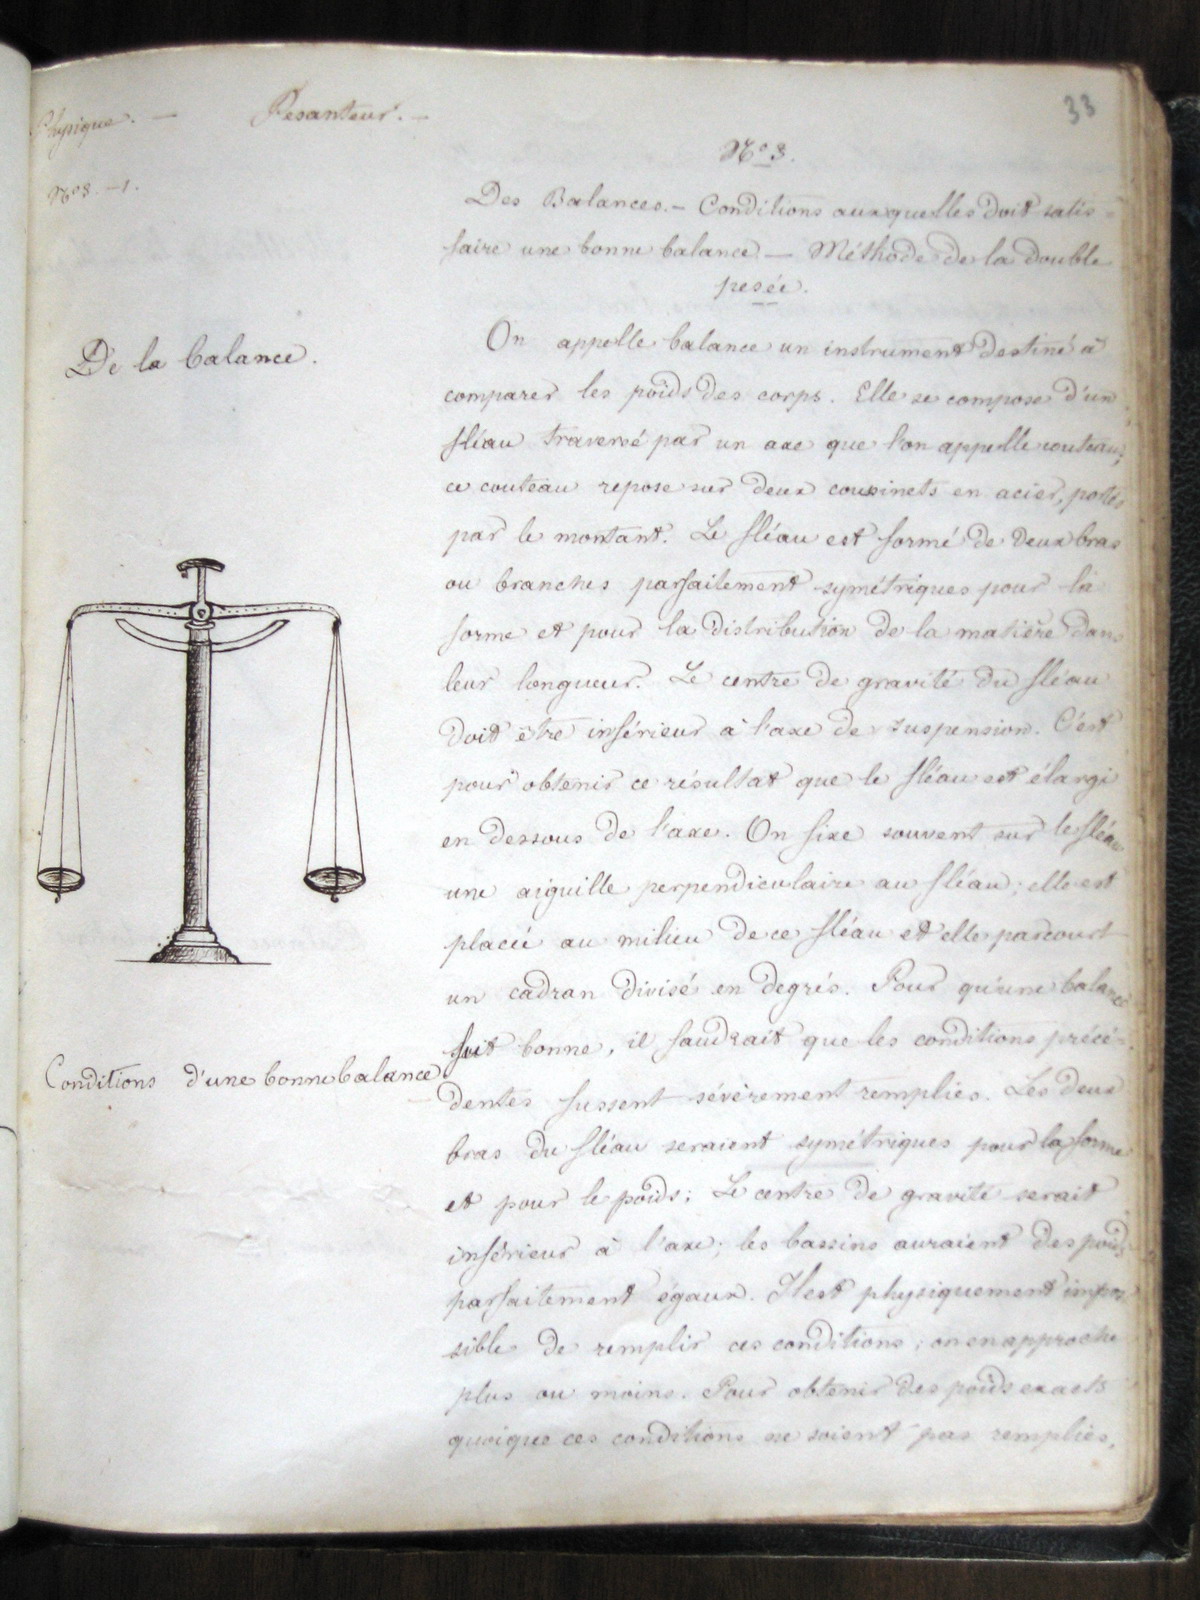 33
Physique. — Pesanteur. —
Nº 3. — 1.
Nº 3.
Des Balances. — Conditions auxquelles doit satis-
faire une bonne balance — Méthode de la double
pesée.
De la balance.
On appelle balance un instrument destiné à
comparer les poids des corps. Elle se compose d'un
fléau traversé par un axe que l'on appelle couteau;
ce couteau repose sur deux coussinets en acier, portés
par le montant. Le fléau est formé de deux bras
ou branches parfaitement symétriques pour la
forme et pour la distribution de la matière dans
leur longueur. Le centre de gravité du fléau
doit être inférieur à l'axe de suspension. C'est
pour obtenir ce résultat que le fléau est élargi
en dessous de l'axe. On fixe souvent sur le fléau
une aiguille perpendiculaire au fléau; elle est
placée au milieu de ce fléau et elle parcourt
un cadran divisé en degrés. Pour qu'une balance
Conditions d'une bonne balance
soit bonne, il faudrait que les conditions précé-
dentes fussent sévèrement remplies. Les deux
bras du fléau seraient symétriques pour la forme
et pour le poids; Le centre de gravité serait
inférieur à l'axe; les bassins auraient des poids
parfaitement égaux. Il est physiquement impos
sible de remplir ces conditions; on en approche
plus ou moins. Pour obtenir des poids exacts
quoique ces conditions ne soient pas remplies,